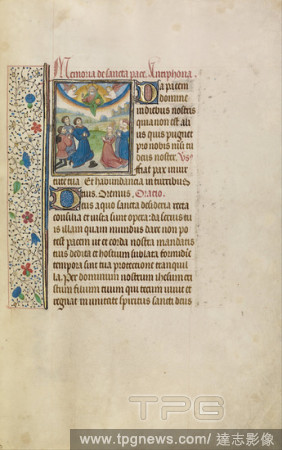 Memoria de sancta pace. Antiphona.
Da pacem
domine
in diebus nostris
quia non est ali
us quis pugnet
pro nobis nisi tu
deus noster. Vs
Fiat pax in vir
tute tua Et habundancia in turribus
tuis. Oremus. Oratio.
Deus a quo sancta desideria recta
consilia et iusta sunt opera: da seruis tu
is illam quam mundus dare non po
test pacem ut et corda nostra mandatis
tuis dedita et hostium sublata formidine
tempora sint tua protectione tranquil
la. Per dominum nostrum ihesum cri
stum filium tuum qui tecum uiuit et
regnat in unitate spiritus sancti deus
TPG
www.tpgnews.com/ 達志影像